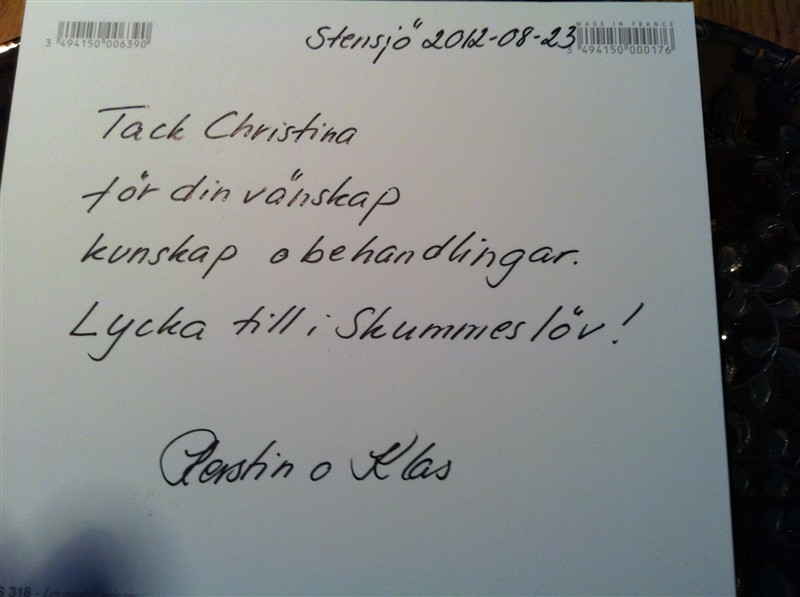 MADE IN FRANCE
3 494150 006390
Stensjö 2012-08-23
3 494150 000176
Tack Christina
för din vänskap
kunskap o behandlingar.
Lycka till i Skummeslöv!
Kerstin o Klas